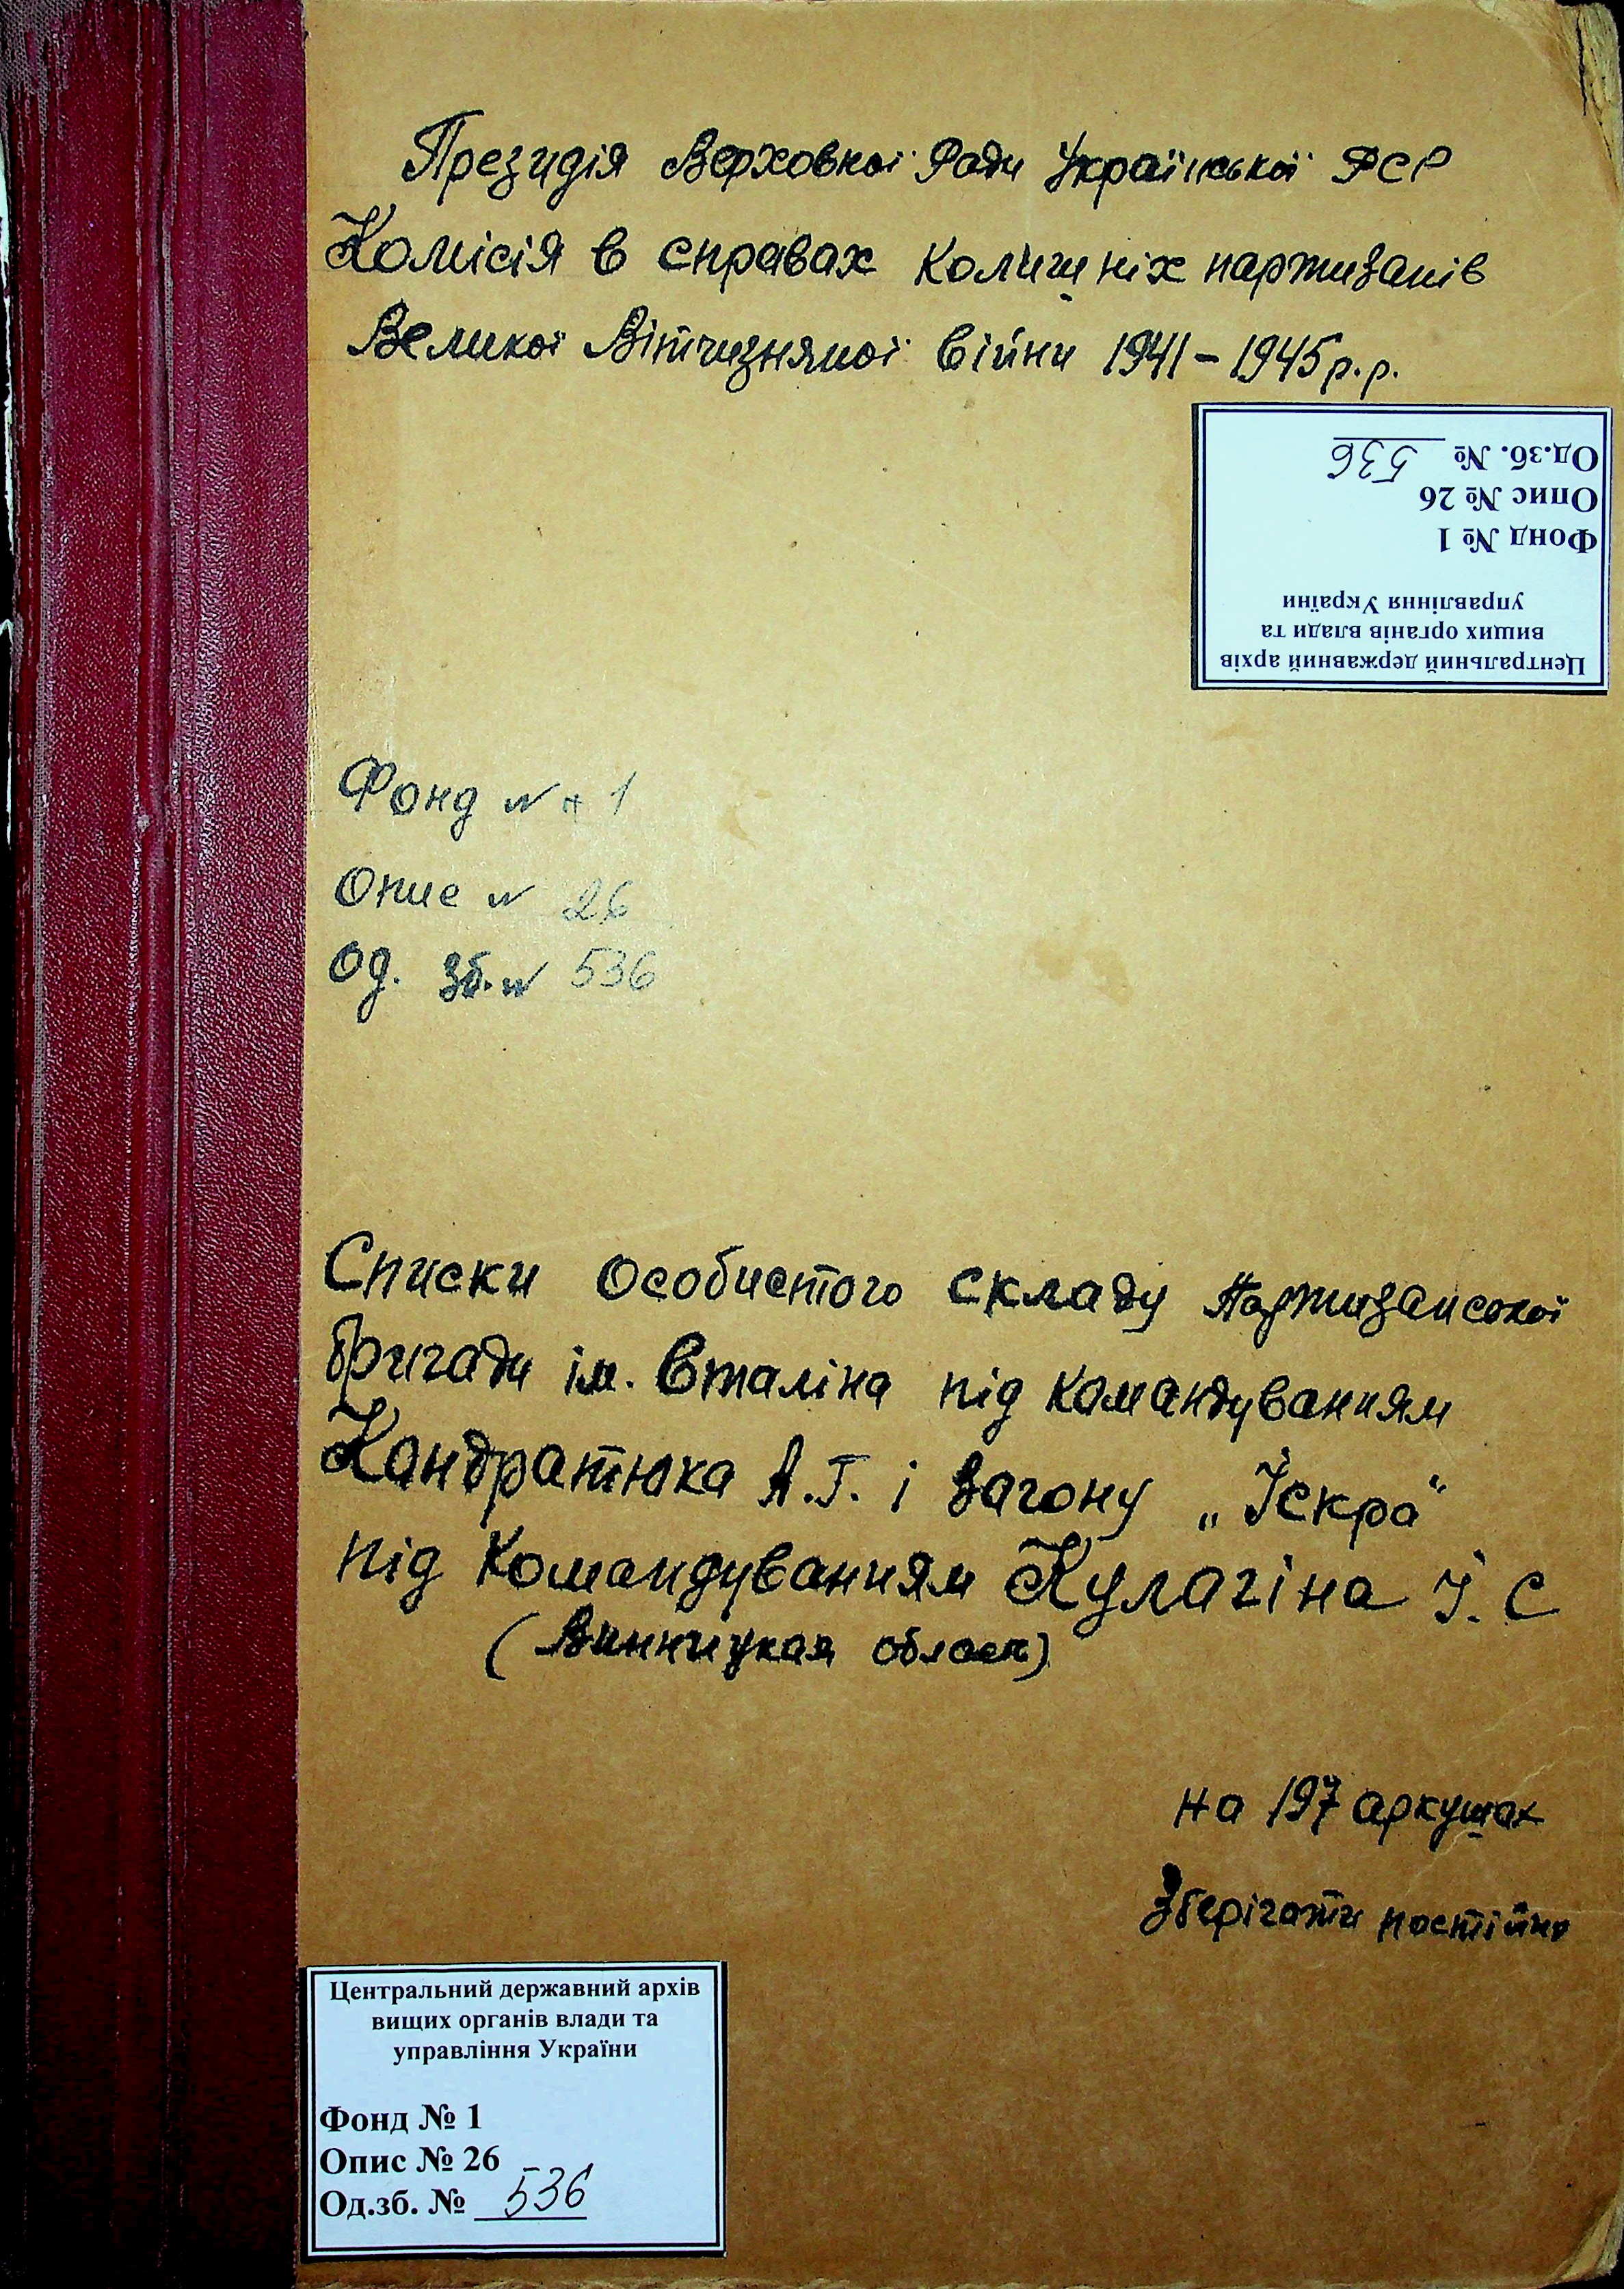 Президія Верховної Ради Української РСР
Комісія в справах колишніх партизанів
Великої Вітчизняної війни 1941-1945 р.р.
Од.зб. № 536
Опис № 26
Фонд № 1
Центральний державний архів
вищих органів влади та
управління України
Фонд № 1
Опис № 26
Од. зб. № 536
Списки особистого складу партизанської
бригади ім. Сталіна під командуванням
Кондратюка А.Г. і загону „Іскра"
під командуванням Кулагіна І. С
(Винницкая область)
на 197 аркушах
Зберігати постійно
Центральний державний архів
вищих органів влади та
управління України
Фонд № 1
Опис № 26
Од.зб. № 536